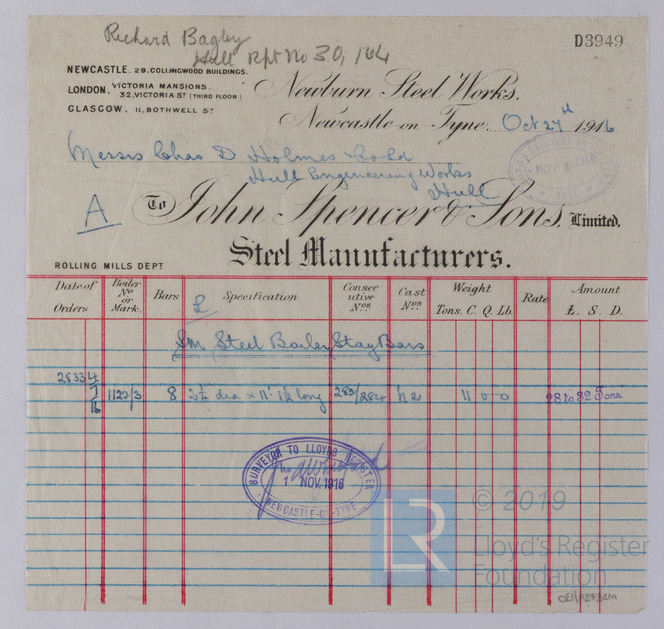 Richard Bagley
Hull Rpt No 30,104
D3949
NEWCASTLE. 29. COLLINGWOOD BUILDINGS.
LONDON, VICTORIA MANSIONS,
32, VICTORIA ST (THIRD FLOOR)
GLASGOW, 11, BOTHWELL ST
Newburn Steel Works,
Newcastle-on-Tyne, Oct 27th 1916
Messrs Chas D Holmes & Co Ld
Hull Engineering Works
Hull
A
To John Spencer & Sons, Limited,
Steel Manufacturers.
ROLLING MILLS DEPT
Date of Orders Boiler No or Mark. Bars Specification Consec utive Nos. Cast Nos Weight Tons. C. Q. Lb. Rate Amount £. S. D.
£
SM Steel Boiler Stay Bars
28334
7
16 1122/3 8 dia x 11' 1½ long 283/284 11 0 0 28 to 32 Tons
SURVEYOR TO LLOYDS REGISTER
1 NOV. 1916
NEWCASTLE-ON-TYNE
LR © 2019
Lloyd's Register
Foundation